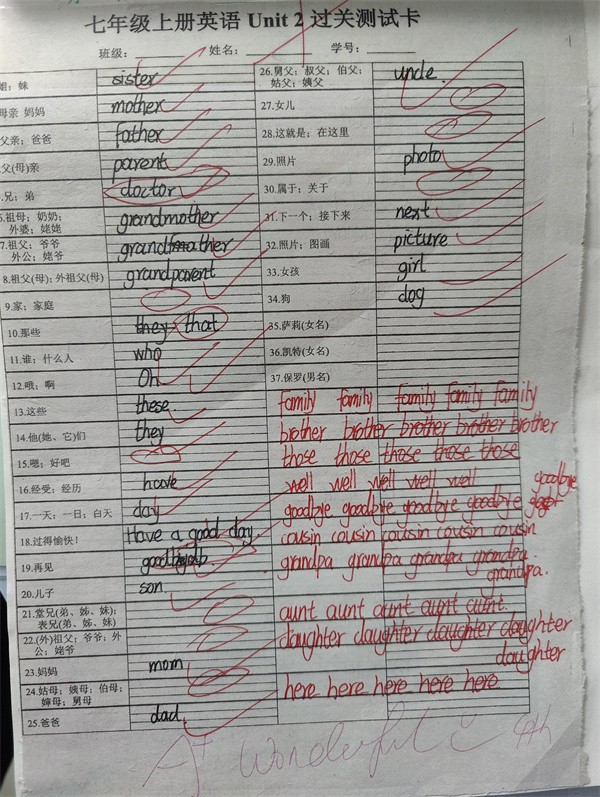 七年级上册英语 Unit 2 过关测试卡
班级： 姓名： 学号：
姐；妹 sister 26.舅父；叔父；伯父； uncle.
姑父；姨父
母亲 妈妈 mother 27.女儿
父亲；爸爸 father 28.这就是；在这里
父(母)亲 parent 29.照片 photo
兄；弟 doctor 30.属于；关于
6.祖母；奶奶； grandmother 31.下一个；接下来 next
外婆；姥姥
7.祖父；爷爷 32.照片；图画 picture
外公；姥爷
8.祖父(母)；外祖父(母) grandparent 33.女孩 girl
9.家；家庭 34.狗 dog
10.那些 they that 35.萨莉(女名)
11.谁；什么人 who 36.凯特(女名)
12.哦；啊 Oh 37.保罗(男名)
13.这些 these. family family family family family
14.他(她、它)们 they brother brother brother brother brother
15.嗯；好吧 those those those those those
16.经受；经历 have well well well well well
17.一天；一日；白天 day goodbye goodbye goodbye goodbye goodbye
18.过得愉快！ Have a good day cousin cousin cousin cousin cousin
19.再见 grandpa grandpa grandpa grandpa.
grandpa.
20.儿子 son.
21.堂兄(弟、姊、妹)； aunt aunt aunt aunt aunt.
表兄(弟、姊、妹)
22.(外)祖父；爷爷；外 daughter daughter daughter daughter
公；姥爷 daughter
23.妈妈 mom
24.姑母；姨母；伯母； here here here here here
婶母；舅母
25.爸爸 dad.
A+ Wonderful